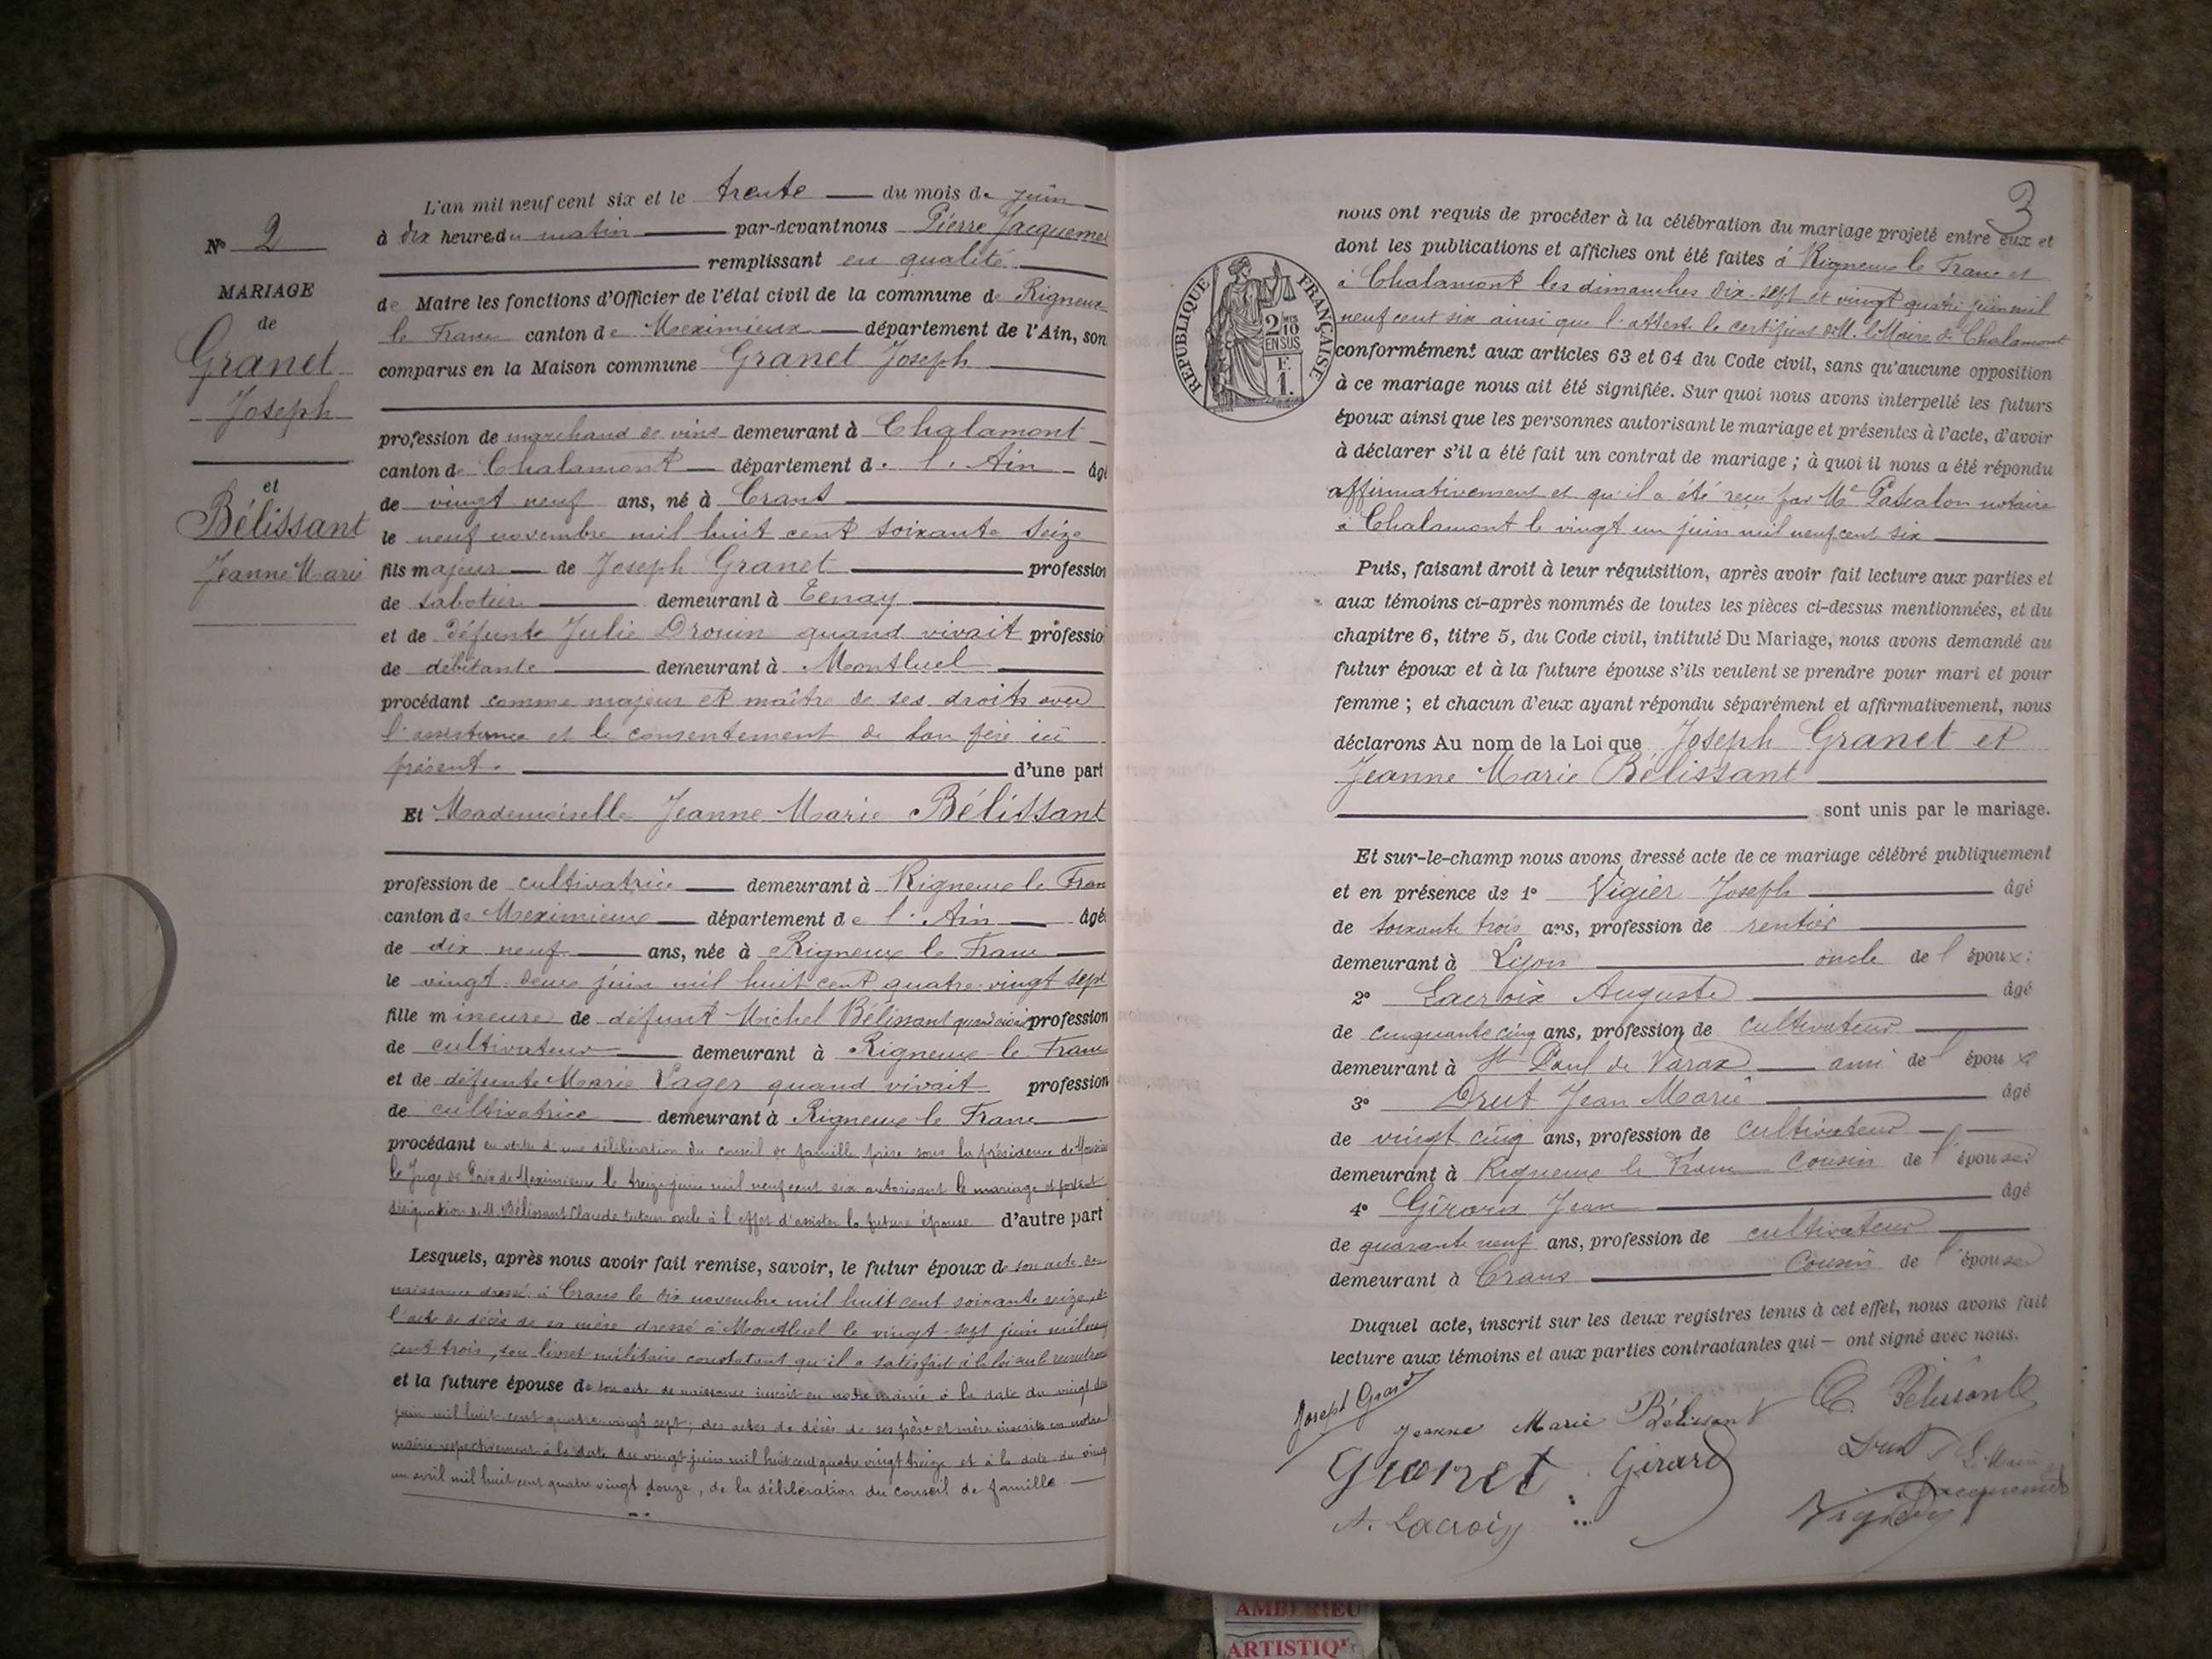 N° 2
MARIAGE
de
Granet
Joseph
et
Bélissant
Jeanne Marie
L'an mil neuf cent six et le trente du mois de juin
à dix heures du matin par-devant nous Pierre Jacquemet
remplissant en qualité
de Maire les fonctions d'Officier de l'état civil de la commune de Rigneux
le Franc canton de Meximieux département de l'Ain, son
comparus en la Maison commune Granet Joseph
profession de marchand de vins demeurant à Chalamont
canton de Chalamont département de l'Ain âgé
de vingt neuf ans, né à Crans
le neuf novembre mil huit cent soixante seize
fils majeur de Joseph Granet profession
de sabotier demeurant à Tenay
et de défunte Julie Drouin quand vivait profession
de débitante demeurant à Montluel
procédant comme majeur et maître de ses droits avec
l'assistance et le consentement de son père ici
présent. d'une part
Et Mademoiselle Jeanne Marie Bélissant
profession de cultivatrice demeurant à Rigneux le Franc
canton de Meximieux département de l'Ain âgé
de dix neuf ans, née à Rigneux le Franc
le vingt deux juin mil huit cent quatre-vingt sept
fille mineure de défunt Michel Bélissant quand vivait profession
de cultivateur demeurant à Rigneux le Franc
et de défunte Marie Pager quand vivait profession
de cultivatrice demeurant à Rigneux le Franc
procédant en vertu d'une délibération du conseil de famille prise sous la présidence de Monsieur
le Juge de Paix de Meximieux le treize juin mil neuf cent six autorisant le mariage et portant
désignation de M. Bélissant Claude tuteur oncle à l'effet d'assister la future épouse d'autre part
Lesquels, après nous avoir fait remise, savoir, le futur époux de son acte de
naissance dressé à Crans le dix novembre mil huit cent soixante seize, de
l'acte de décès de sa mère dressé à Montluel le vingt-sept juin mil neuf
cent trois, son livret militaire constatant qu'il a satisfait à la loi sur le recrutement
et la future épouse de son acte de naissance inscrit en notre mairie à la date du vingt deux
juin mil huit cent quatre-vingt sept; des actes de décès de ses père et mère inscrits en notre
mairie respectivement à la date du vingt juin mil huit cent quatre vingt treize et à la date du vingt
un avril mil huit cent quatre vingt douze, de la délibération du conseil de famille
3
RÉPUBLIQUE FRANÇAISE
2/10 EN SUS
F. 1.
nous ont requis de procéder à la célébration du mariage projeté entre eux et
dont les publications et affiches ont été faites à Rigneux le Franc et
à Chalamont les dimanches dix-sept et vingt quatre juin mil
neuf cent six ainsi que l'atteste le certificat de M. le Maire de Chalamont
conformément aux articles 63 et 64 du Code civil, sans qu'aucune opposition
à ce mariage nous ait été signifiée. Sur quoi nous avons interpellé les futurs
époux ainsi que les personnes autorisant le mariage et présentes à l'acte, d'avoir
à déclarer s'il a été fait un contrat de mariage ; à quoi il nous a été répondu
affirmativement et qu'il a été reçu par Me notaire
à Chalamont le vingt un juin mil neuf cent six
Puis, faisant droit à leur réquisition, après avoir fait lecture aux parties et
aux témoins ci-après nommés de toutes les pièces ci-dessus mentionnées, et du
chapitre 6, titre 5, du Code civil, intitulé Du Mariage, nous avons demandé au
futur époux et à la future épouse s'ils veulent se prendre pour mari et pour
femme ; et chacun d'eux ayant répondu séparément et affirmativement, nous
déclarons Au nom de la Loi que Joseph Granet et
Jeanne Marie Bélissant
sont unis par le mariage.
Et sur-le-champ nous avons dressé acte de ce mariage célébré publiquement
et en présence de 1° Vigier Joseph âgé
de soixante trois ans, profession de rentier
demeurant à Lyon oncle de l'époux;
2° Lacroix Auguste âgé
de cinquante cinq ans, profession de cultivateur
demeurant à St Paul de Varax ami de l'époux
3° Drut Jean Marie âgé
de vingt cinq ans, profession de cultivateur
demeurant à Rigneux le Franc cousin de l'épouse
4° Girard Jean âgé
de quarante neuf ans, profession de cultivateur
demeurant à Crans cousin de l'épouse
Duquel acte, inscrit sur les deux registres tenus à cet effet, nous avons fait
lecture aux témoins et aux parties contractantes qui — ont signé avec nous.
Jeanne Marie Bélissant C. Bélissant
Granet Girard Drut
A. Lacroix Vigier Jacquemet
AMBERIEU
ARTISTIQ